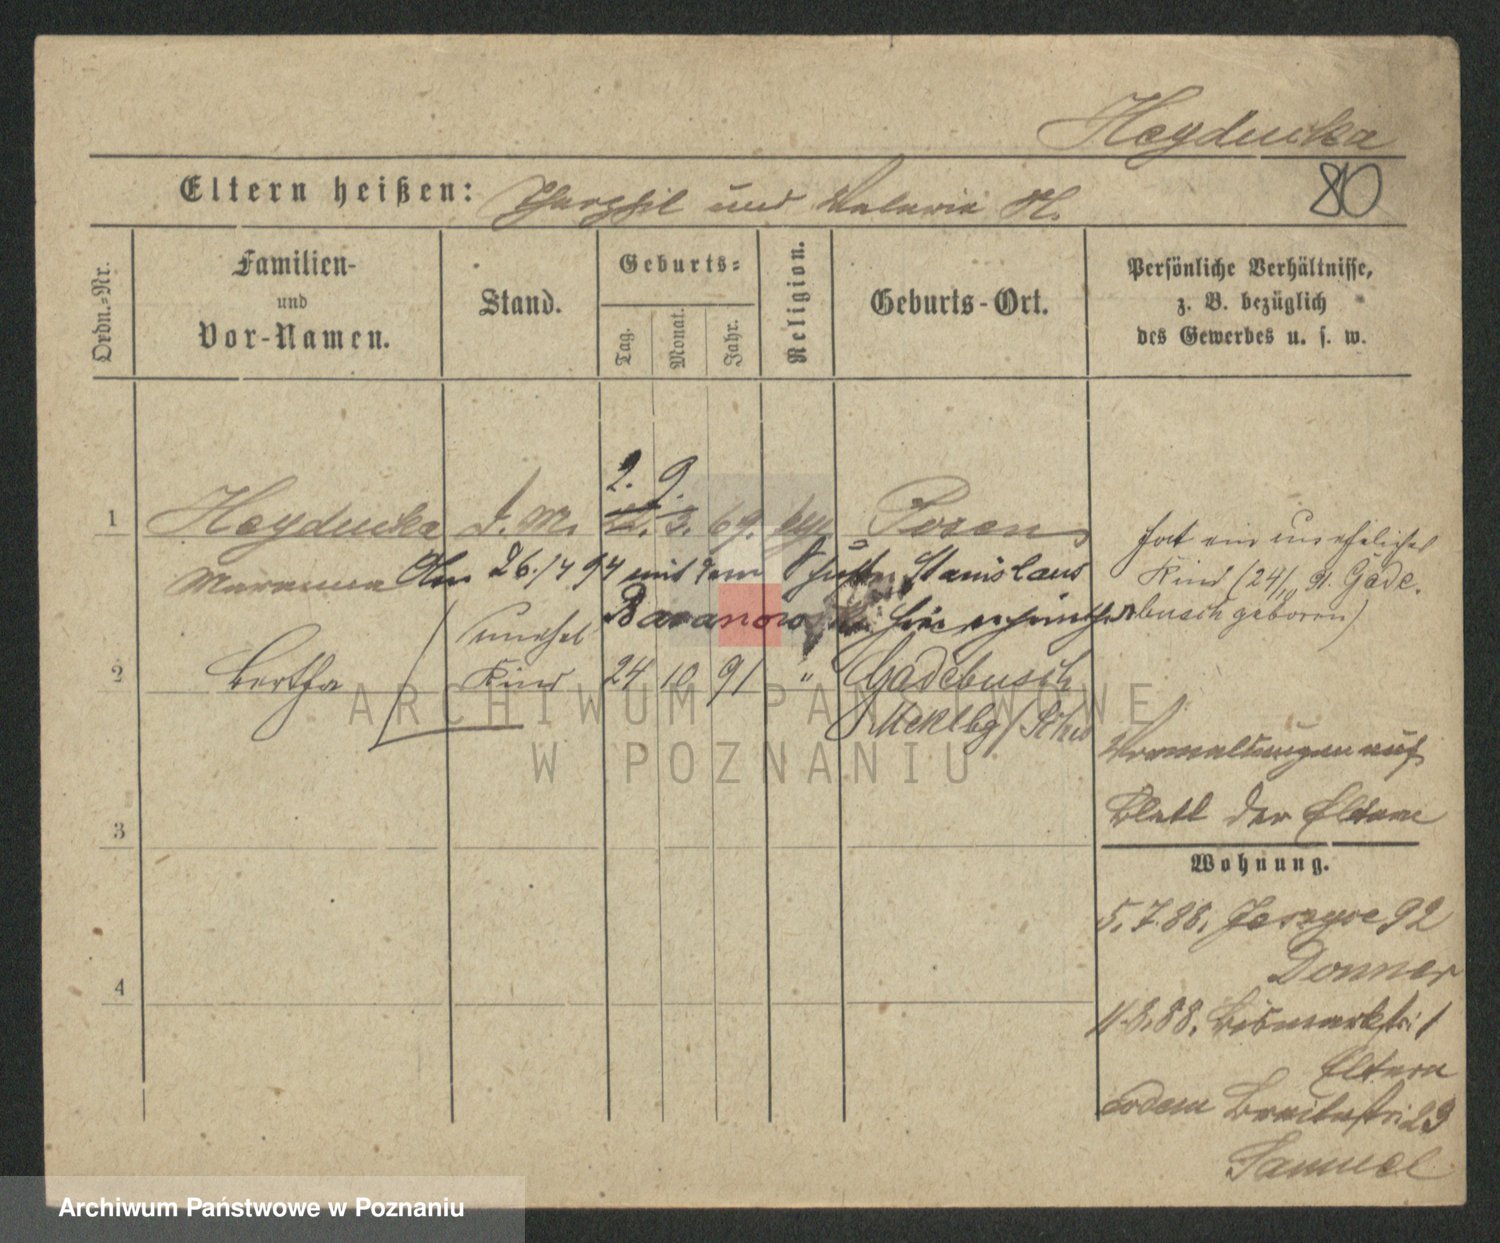 Heyducka
Eltern heißen: und Valeria H.
80
Ordn.-Nr.
Familien-
und
Vor-Namen.
Stand.
Geburts-
Tag.
Monat.
Jahr.
Religion.
Geburts-Ort.
Persönliche Verhältnisse,
z. B. bezüglich
des Gewerbes u. s. w.
2. 9.
1 Heyducka d. M. 3. 69. Posen
Maranna Am 26./7 94 mit dem Stanislaus
Baranowski hier
hat ein uneheliches
Kind (24/10 91. Gade-
busch geboren)
unehel
2 Bertha Kind 24 10 91 " Gadebusch
Meklbg/Schw
auf
Blatt der Eltern
3
Wohnung.
5.7.88. 92
Donner
4
11.8.88. Bismarkstr: 1
Eltern
Breitestr: 23
Samuel
ARCHIWUM PAŃSTWOWE
W POZNANIU
Archiwum Państwowe w Poznaniu